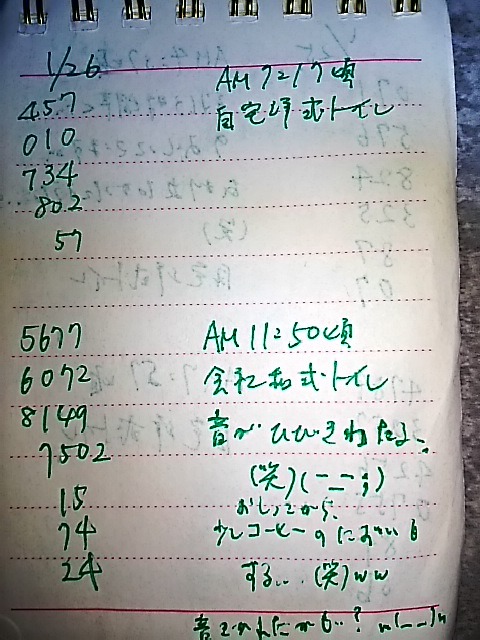 1/26
457 AM 7=17頃
010 自宅洋式トイレ
734
802
57
5677 AM 11=50頃
6072 会社和式トイレ
8149 音がひびきわたる、
7502
15 (笑)(-_-;)
おしっこから、
74 少しコーヒーのにおいも
24 する... (笑)ww